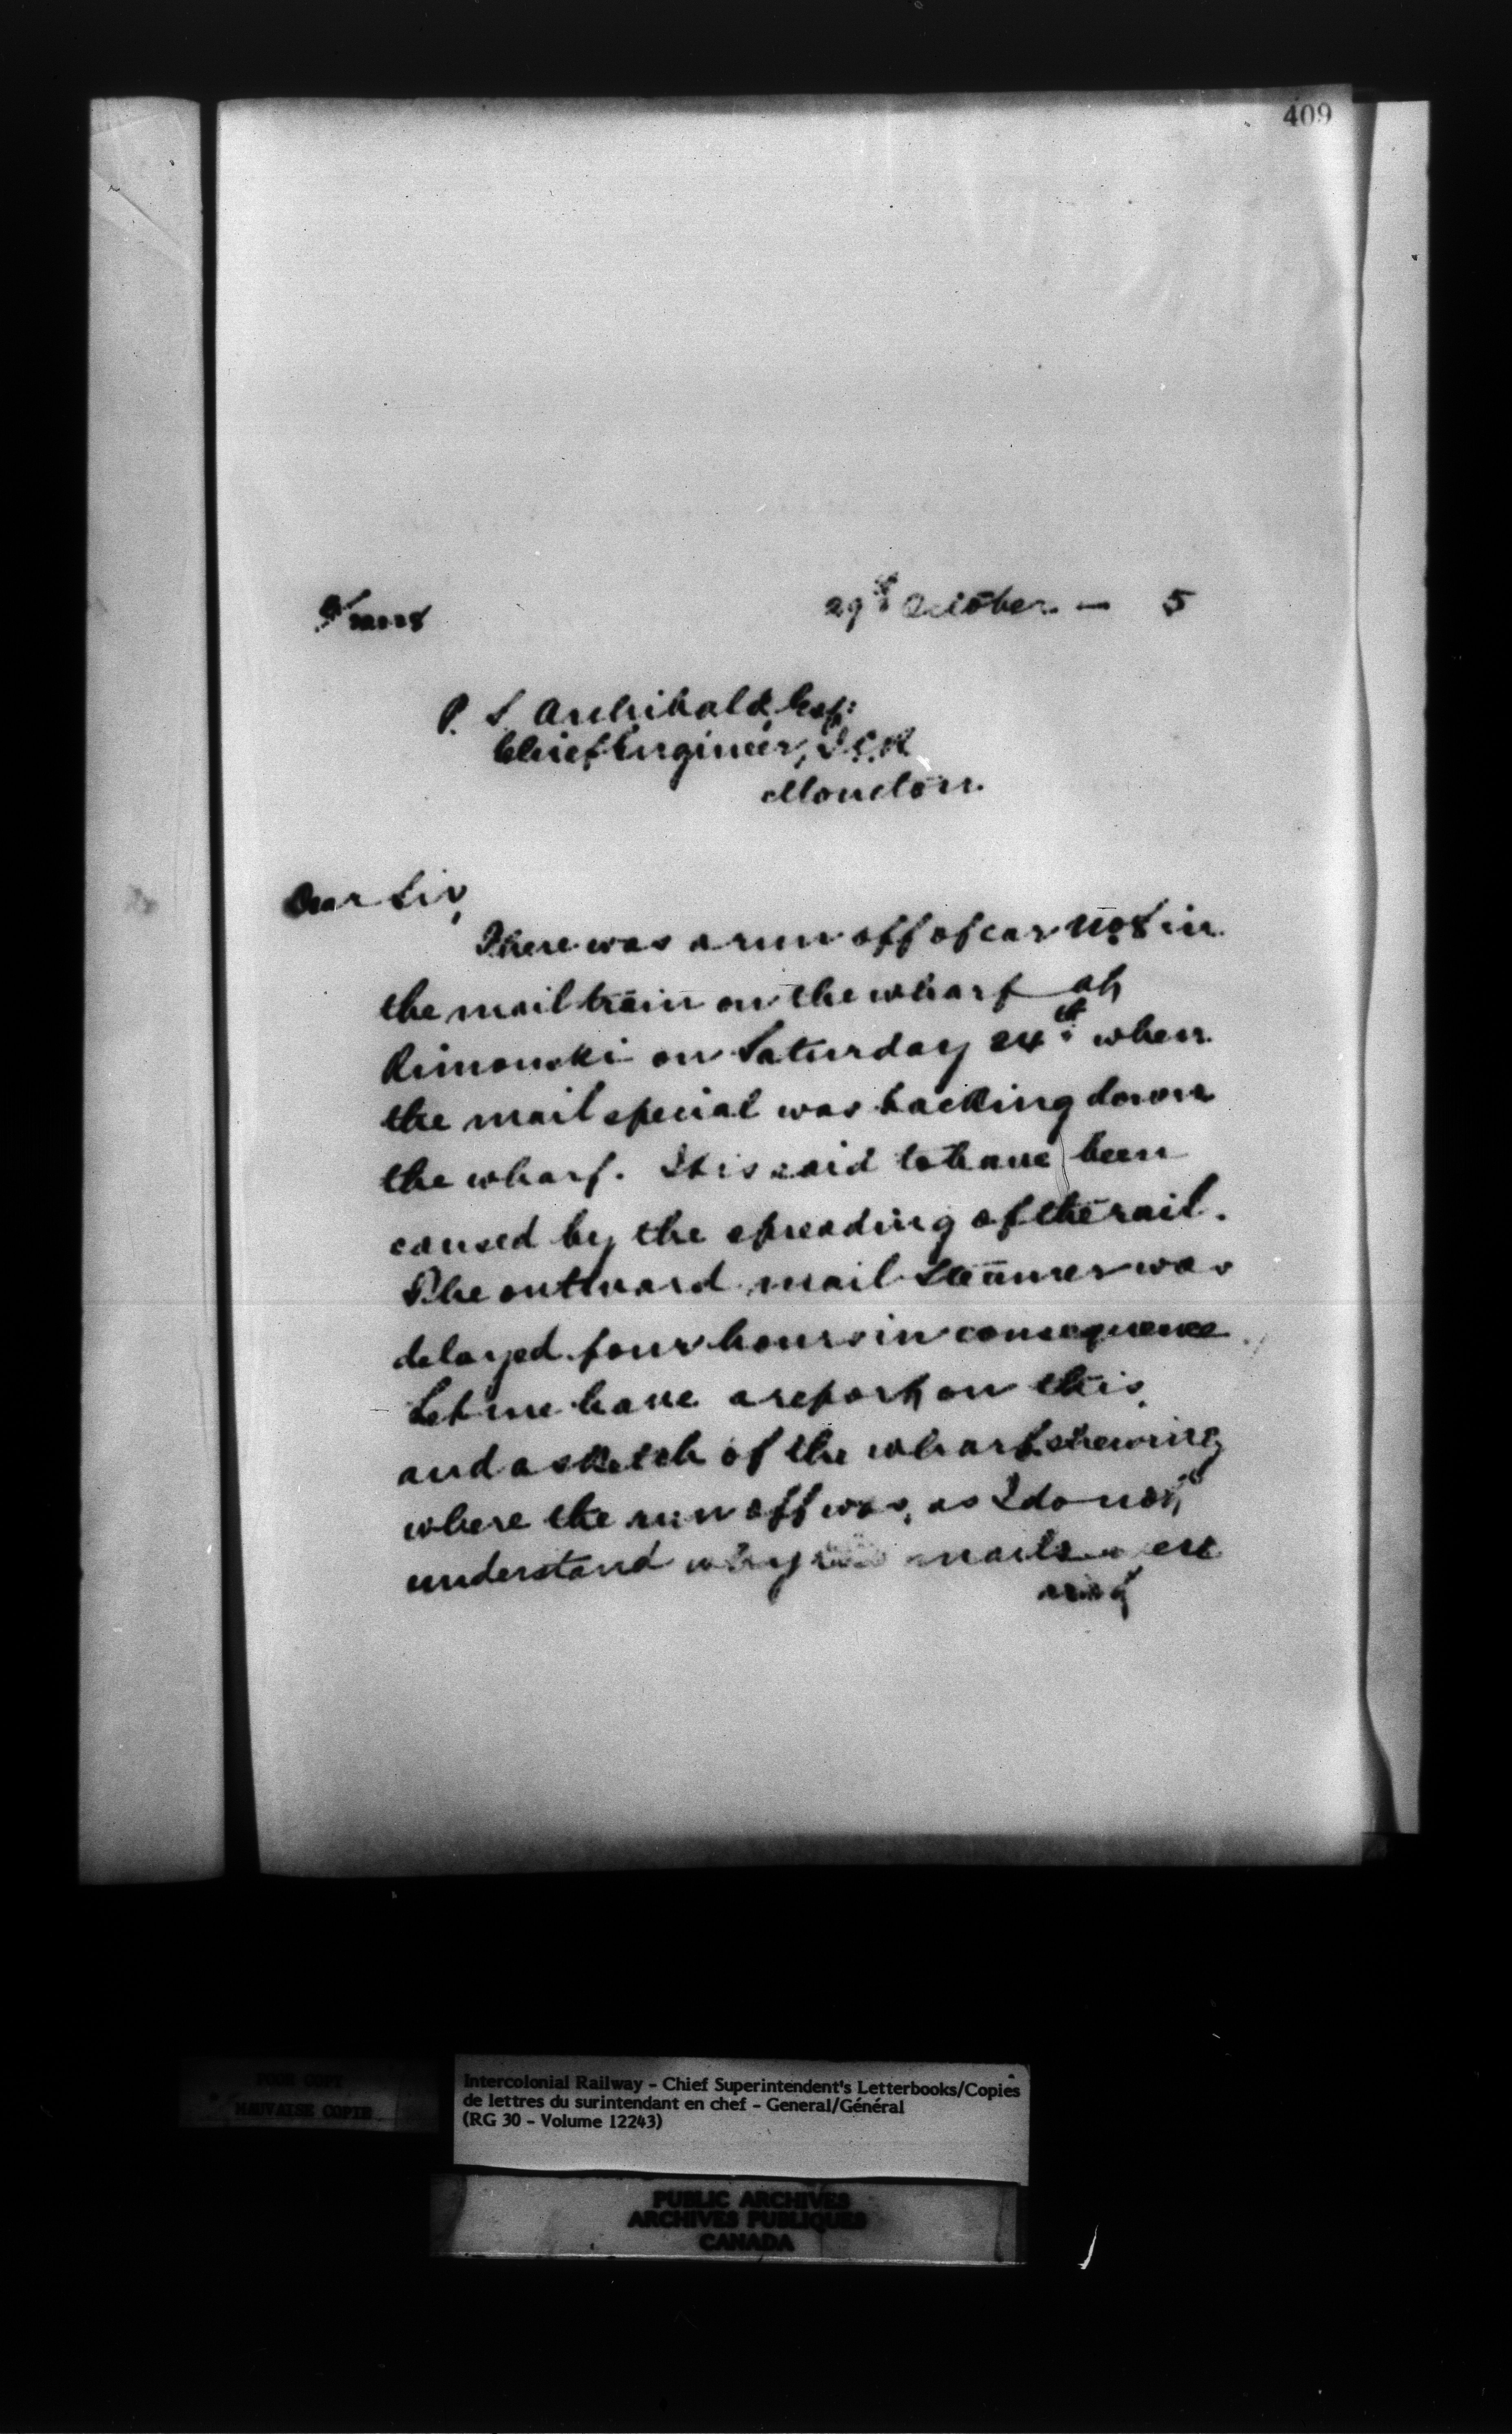 409
29th October — 5
P. S. Archibald, Esq:
Chief Engineer, I.C.R
Moncton.
Dear Sir,
There was a run off of car No 8 in
the mail train on the wharf at
Rimouski on Saturday 24th when
the mail special was backing down
the wharf. It is said to have been
caused by the spreading of the rail.
The outward mail steamer was
delayed four hours in consequence
Let me have a report on this,
and a sketch of the wharf shewing
where the run off was, as I do not
understand why mails were
not
POOR COPY
MAUVAISE COPIE
Intercolonial Railway - Chief Superintendent's Letterbooks/Copies
de lettres du surintendant en chef - General/Général
(RG 30 - Volume 12243)
PUBLIC ARCHIVES
ARCHIVES PUBLIQUES
CANADA